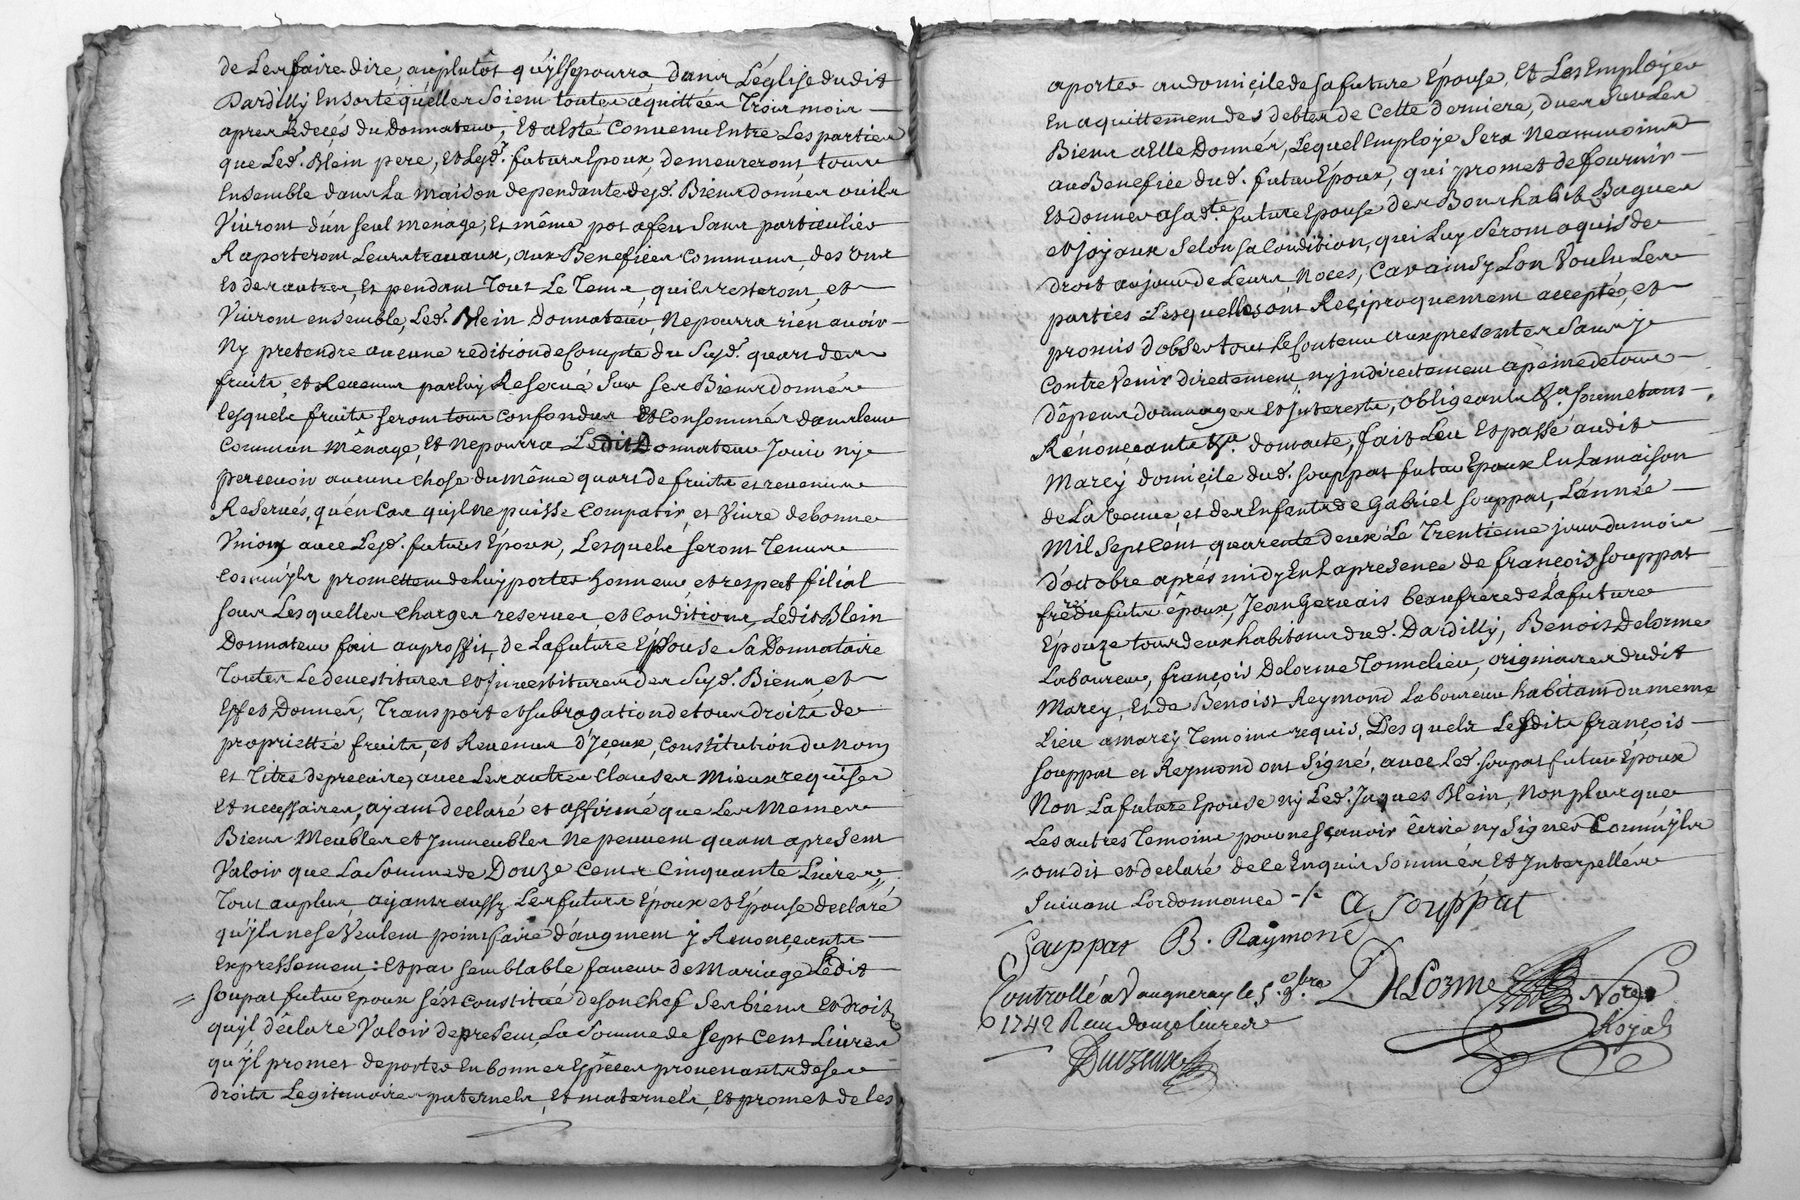 de Les faire dire, auplutôt qu'ylsepourra dans L'église dudit
Dardilly Ensorte qu'elles soient toutes aquittées Trois mois
apres Le decés du Donnateur, Et a Esté Convenu Entre Les parties
que Led. Blein pere, et Lesd. futurs Epoux, demeureront tous
Ensemble dans La maison dependante desd. Biens donnés ou ils
Vivront d'un seul menage, Et même pot a feu sans particulier
Raporteront Leurs travaux, aux Benefices Communs, des uns
Et des autres, Et pendant Tout Le Tems qu'ils resteront, et
Vivront ensemble, Led. Blein Donnateur, Ne pourra rien avoir
Ny pretendre aucune redition de Compte du Susd. quart des
fruits, et Revenus par luy Reservé Sur ses Biens donnés
lesquels fruits seront tous confondus Et Consommés dans leur
Commun Ménage, Et Ne pourra Ledit Donnateur Jouir ny
percevoir aucune chose du même quart de fruits et revenus
Reservés, qu'en Cas qu'yl ne puisse Compatir, et Vivre de bonne
Union avec Lesd. futurs Epoux, Lesquels seront Tenus
Comm'yls promettent de luy porter honneur et respect filial
sous Lesquelles Charges reserves, et Conditions, Ledit Blein
Donnateur fait au proffit, de La future Epouse Sa Donnataire
Toutes Les devestitures et Investitures des Susd. Biens, et
Effet Donnés, Transport et subrogation de tous droits de
proprietté fruits, et Revenus d'Yceux, Constitution du Nom
et Titre de precaire, avec Les autres Clauses Mieux requises
Et necessaires, ayant declaré et affirmé que Les Memes
Biens Meubles et Immeubles Ne peuvent quant apresent
Valoir que La Somme de Douze Cent Cinquante Livres
Tout au plus, ayants aussy Les futurs Epoux et Epouse declaré
qu'yls ne se Veulent point faire d'augment y Renonçeants
Expressement: Et par semblable faveur de Mariage Ledit
soupat futur Epoux s'est constitué de son Chef Ses biens et droits
qu'yl déclare Valoir de present, La Somme de Sept Cent Livres
qu'yl promet de porter En bonnes Espêces provenants de ses
droits Legitimaires paternels, Et maternels, et promet de les
aporter au domicile de sa future Epouse, Et Les Employer
En aquittement des debtes de Cette derniere, dues sur Les
Biens a Elle Donnés, Lequel Employe Sera Neanmoins
au Benefice dud. futur Epoux, qui promet de fournir
Et donner a sad.te future Epouse des Bons habits Bagues
et Joyaux selon sa Condition, qui Luy Seront aquis de
droit au jour de Leurs Noces, Car ainsy L'on Voulu Les
parties Lesquelles ont Reçiproquement accepté, et
promis d'observer tout Le Contenu aux presentes sans y
Contrevenir directement, ny indirectement a peine de tous
dêpens dommages Et Interests, obligeants &a. soumetants
Rénonceants &a. dont acte, fait Leu Et passé audit
Marcy domicile dud. Souppat futur Epoux En La maison
de La Veuve, et des Enfants de Gabriel Souppat, L'année
Mil Sept Cent quarente deux Le Trentieme jour du mois
d'octobre aprés midy En La presence de françois Souppat
frere du futur époux, Jean Gervais beaufrere de La future
Epouze tous deux habitans dud. Dardilly, Benoist Delorme
Laboureur, françois Delorme Tonnelier, originaires dudit
Marcy, Et de Benoist Reymond Laboureur habitant du meme
Lieu a marcy Temoins requis, Desquels Lesdits françois
souppat et Reymond ont signé, avec Led. soupat futur Epoux
Non La future Epouse ny Led. Jaques Blein, Non plus que
Les autres Temoins pour ne sçavoir écrire ny signer Comm'yls
ont dit et declaré de ce Enquis sommés Et Interpellés
Suivant L'ordonnance -/- a Souppat
Souppat B. Raymond
Controllé a Vaugneray le 5.e 9bre DeLorme Nore.
1742 Receu douze livres Royal